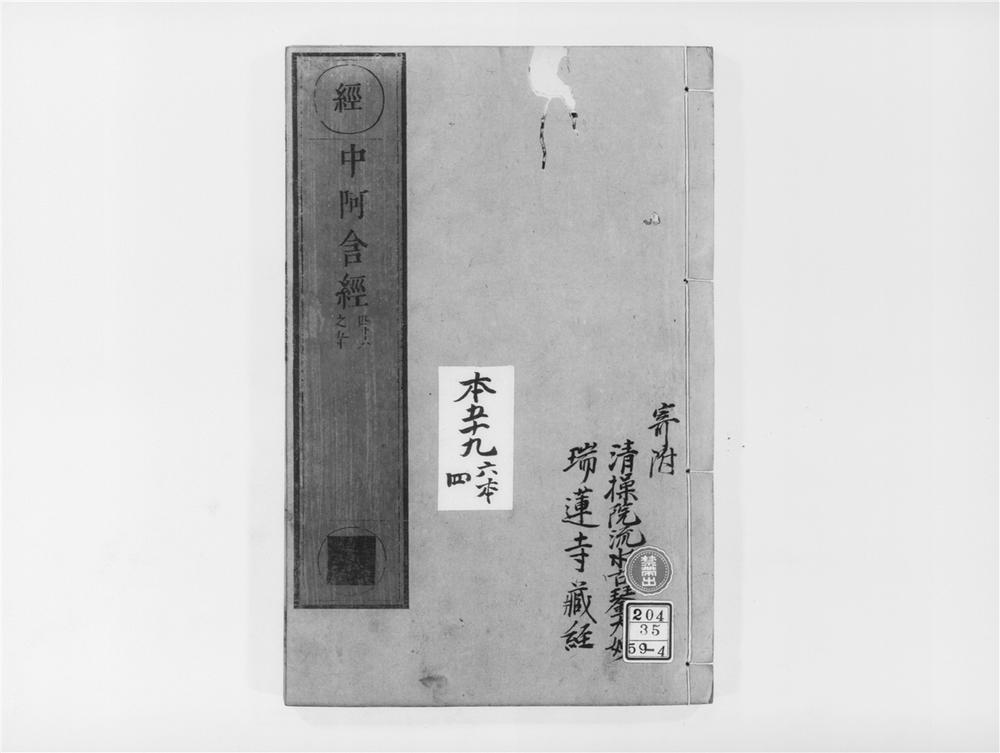 經
中阿含經
四十六
之五十
本五十九
六本
四
寄附
清操院流水古琴大姉
瑞蓮寺藏經
禁帶出
204
35
59-4